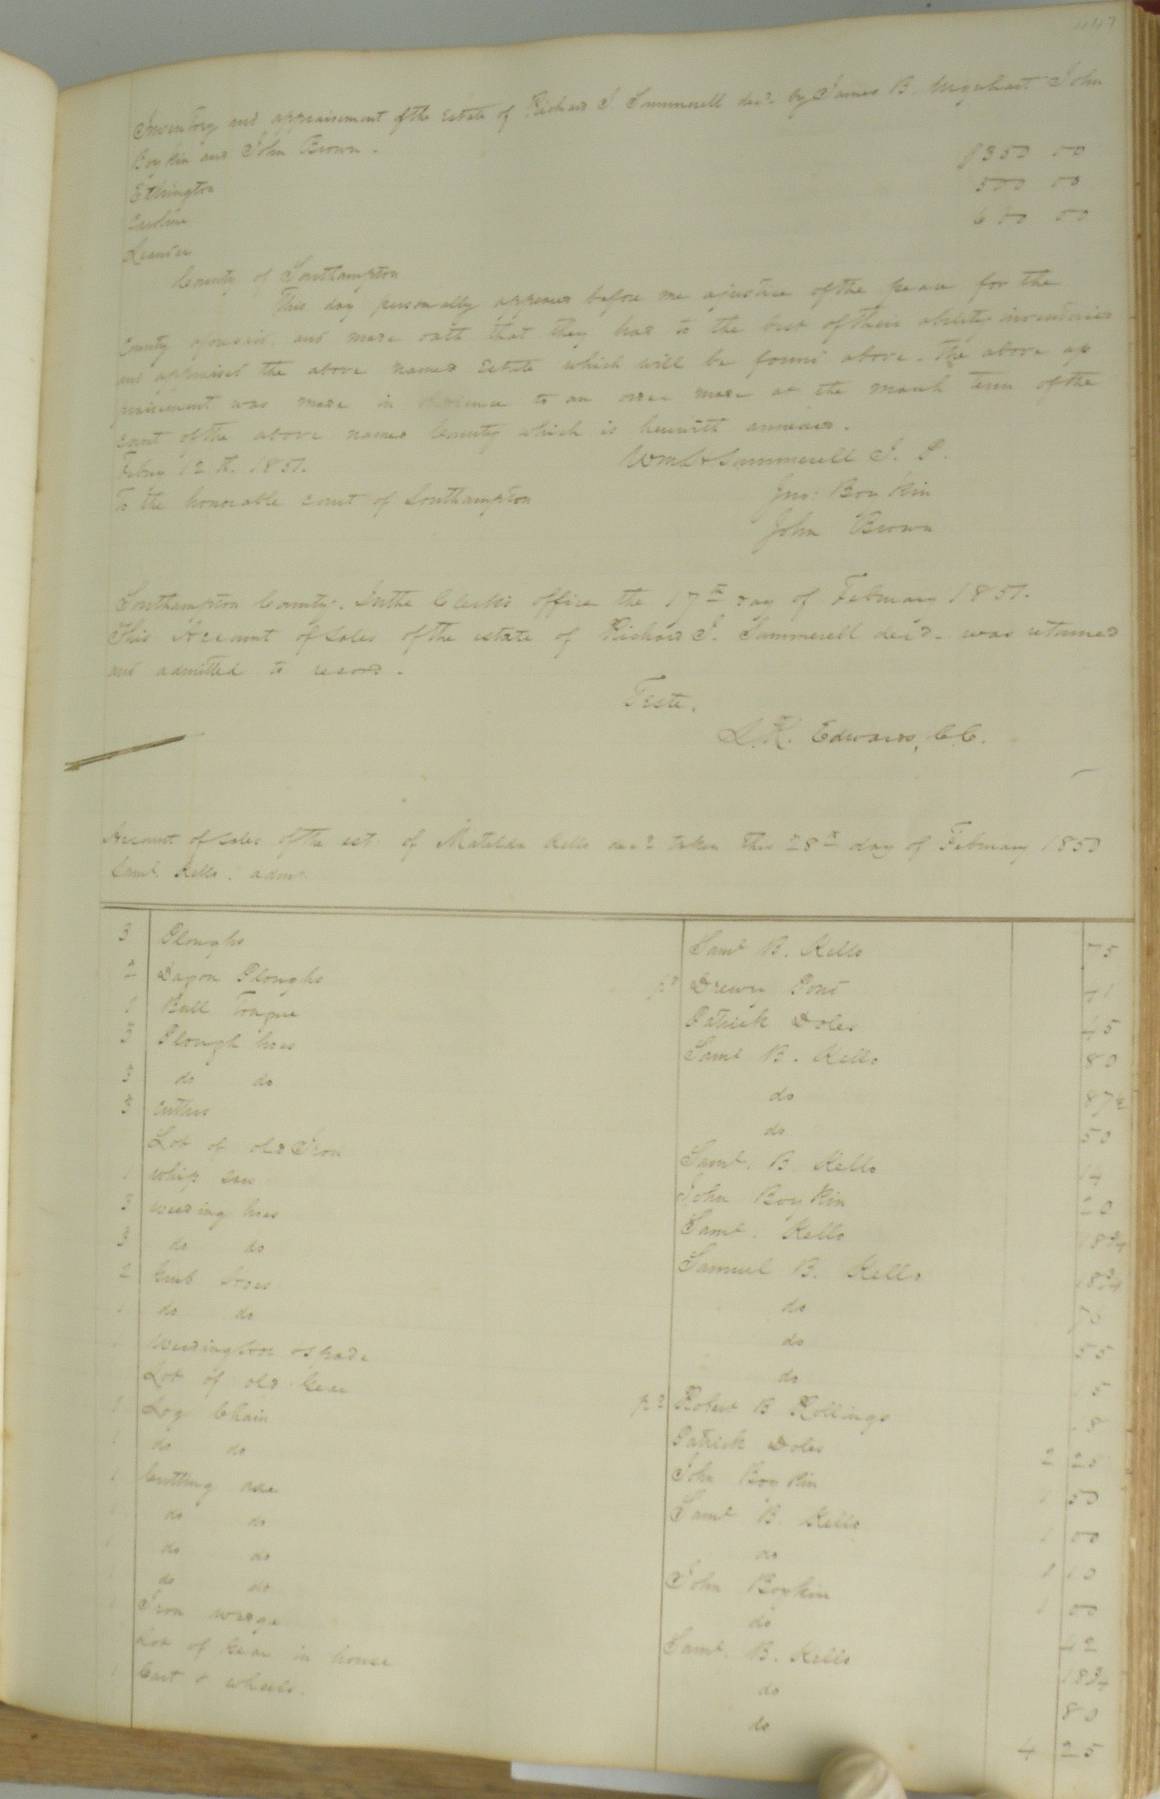 447
Inventory and appraisement of the Estate of Richard J. Summerell decd. by James B. Urquhart John
Boykin and John Brown.
Ethrington $350 00
Caroline 500 00
Leander 600 00
County of Southampton
This day personally appeared before me a justice of the peace for the
County aforesaid, and made oath that they had to the best of their ability inventoried
and appraised the above named Estate which will be found above. The above ap
praisement was made in obedience to an order made at the march term of the
court of the above named County which is herewith annexed.
Feby 12th. 1851. Summerell J. P.
To the honorable court of Southampton Jno: Boykin
John Brown
Southampton County. In the Clerk's office the 17th day of February 1851.
This Account of sales of the estate of Richard J. Summerell dec'd. was returned
and admitted to record.
Teste.
L. R. Edwards, C.C.
Account of sales of the est. of Matilda Kello decd taken this 28th day of February 1850
Saml. Kello. admr.
3 Ploughs Saml B. Kello 75
2 Dagon Ploughs pr Drewry 71
1 Bull Tongue Patrick Doles 45
3 Plough hoes Saml B. Kello 80
3 do do do 87½
3 cutters do 50
Lot of old Iron Saml. B. Kello 14
1 whip saw John Boykin 20
3 weeding hoes Saml. Kello 18¾
3 do do Samuel B. Kello 18¾
2 Grub Hoes do 70
1 do do do 55
1 Weeding hoe & spade do 15
Lot of old Gear pd Robert B Rollings 18
1 Log Chain Patrick Doles 2 25
1 do do John Boykin 1 50
1 Cutting axe Saml B. Kello 1 00
1 do do do 1 10
1 do do John Boykin 1 00
1 do do do 42
1 Iron wedge Saml. B. Kello 18¾
Lot of Gear in house do 80
1 Cart & wheels. do 4 25